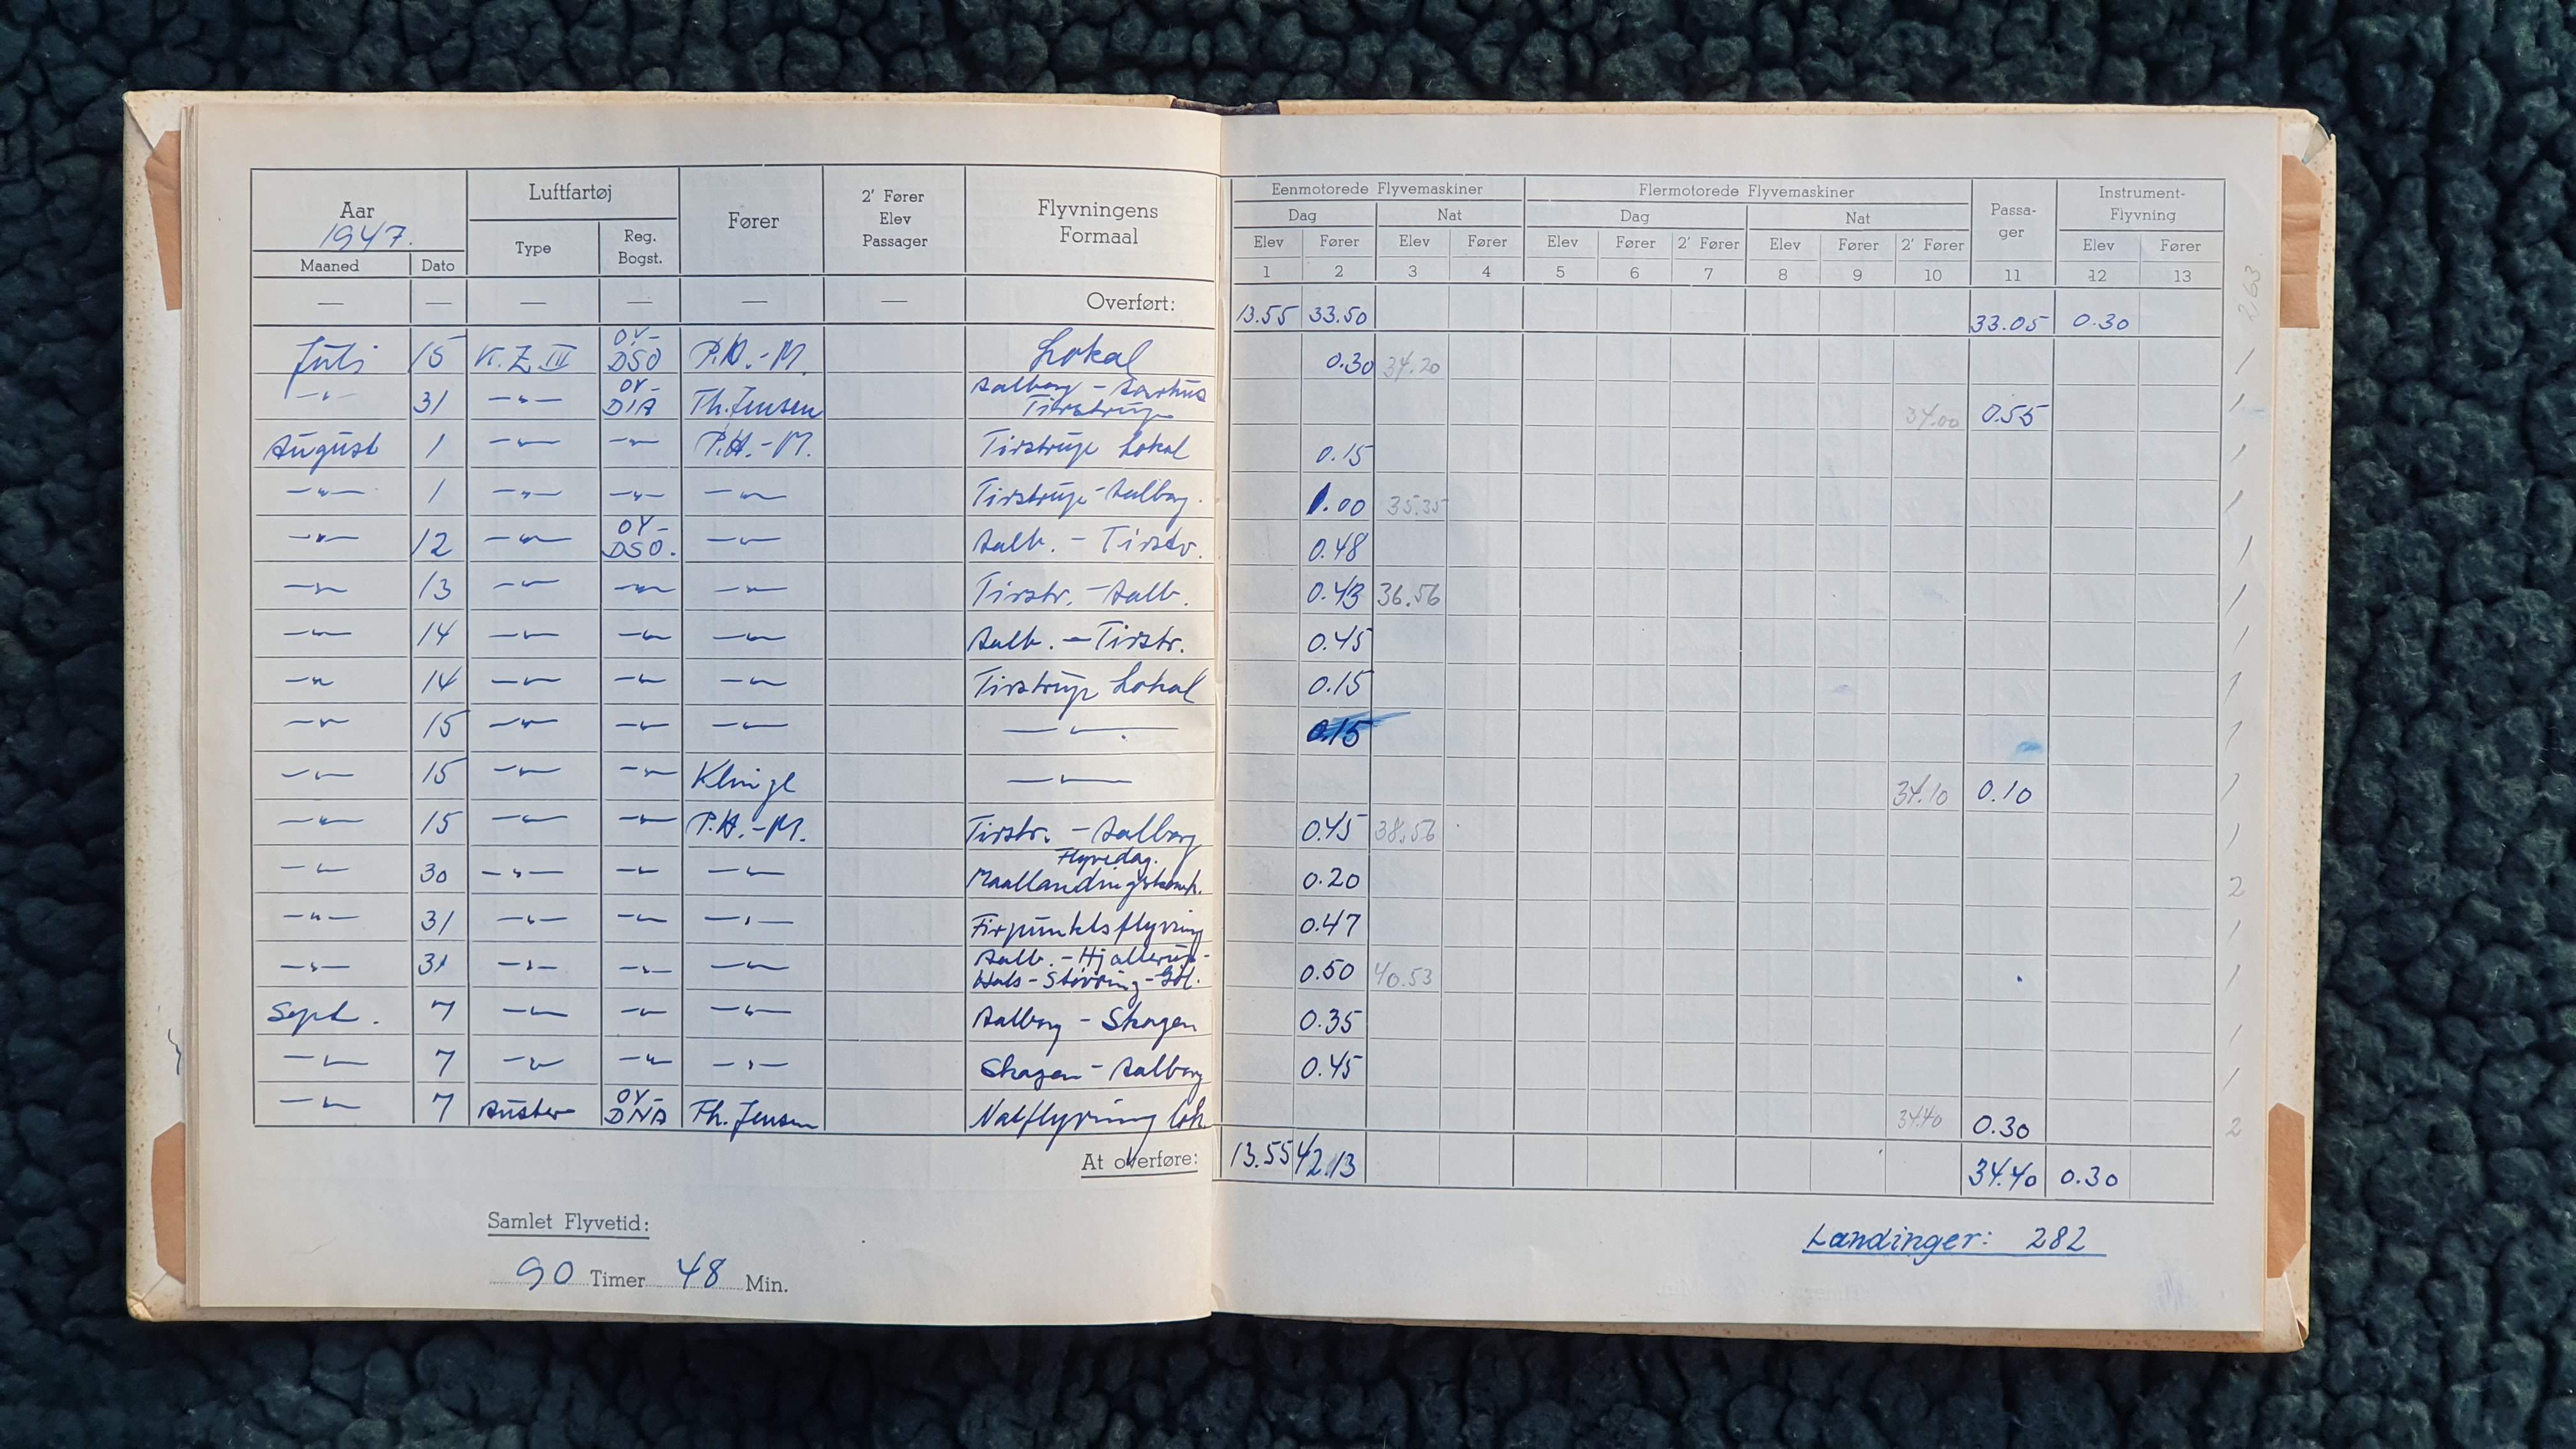 Aar 1947.
Maaned Dato
Luftfartøj
Type Reg. Bogst.
Fører
2' Fører Elev Passager
Flyvningens Formaal
Eenmotorede Flyvemaskiner
Flermotorede Flyvemaskiner
Passa-ger
Instrument-Flyvning
Dag Nat Dag Nat
Elev Fører Elev Fører Elev Fører 2' Fører Elev Fører 2' Fører Elev Fører
1 2 3 4 5 6 7 8 9 10 11 12 13
— — — — — — Overført: 13.55 33.50 33.05 0.30 263
Juli 15 K.Z. III OY-DSO P.H.-M. Lokal 0.30 34.20 1
-"- 31 -"- OY-DIA Th. Jensen Aalborg - Aarhus Tirstrup 34.00 0.55 1
August 1 -"- -"- P.H.-M. Tirstrup Lokal 0.15 1
-"- 1 -"- -"- -"- Tirstrup - Aalborg. 1.00 35.35 1
-"- 12 -"- OY-DSO. -"- Aalb. - Tirstr. 0.48 1
-"- 13 -"- -"- -"- Tirstr. - Aalb. 0.43 36.56 1
-"- 14 -"- -"- -"- Aalb. - Tirstr. 0.45 1
-"- 14 -"- -"- -"- Tirstrup Lokal 0.15 1
-"- 15 -"- -"- -"- -"- 0.15 1
-"- 15 -"- -"- -"- 34.10 0.10 1
-"- 15 -"- -"- P.H.-M. Tirstr. - Aalborg 0.45 38.56 1
-"- 30 -"- -"- -"- Flyvedag. Maallandingskonk. 0.20 2
-"- 31 -"- -"- -"- Firpunktsflyvning 0.47 1
-"- 31 -"- -"- -"- Aalb. - Hjallerup - Hals - Støvring - 0.50 40.53 1
Sept. 7 -"- -"- -"- Aalborg - Skagen 0.35 1
-"- 7 -"- -"- -"- Skagen - Aalborg 0.45 1
-"- 7 Auster OY-DNA Th. Jensen Natflyvning lok. 34.40 0.30 2
At overføre: 13.55 42.13 34.40 0.30
Samlet Flyvetid:
90 Timer 48 Min.
Landinger: 282